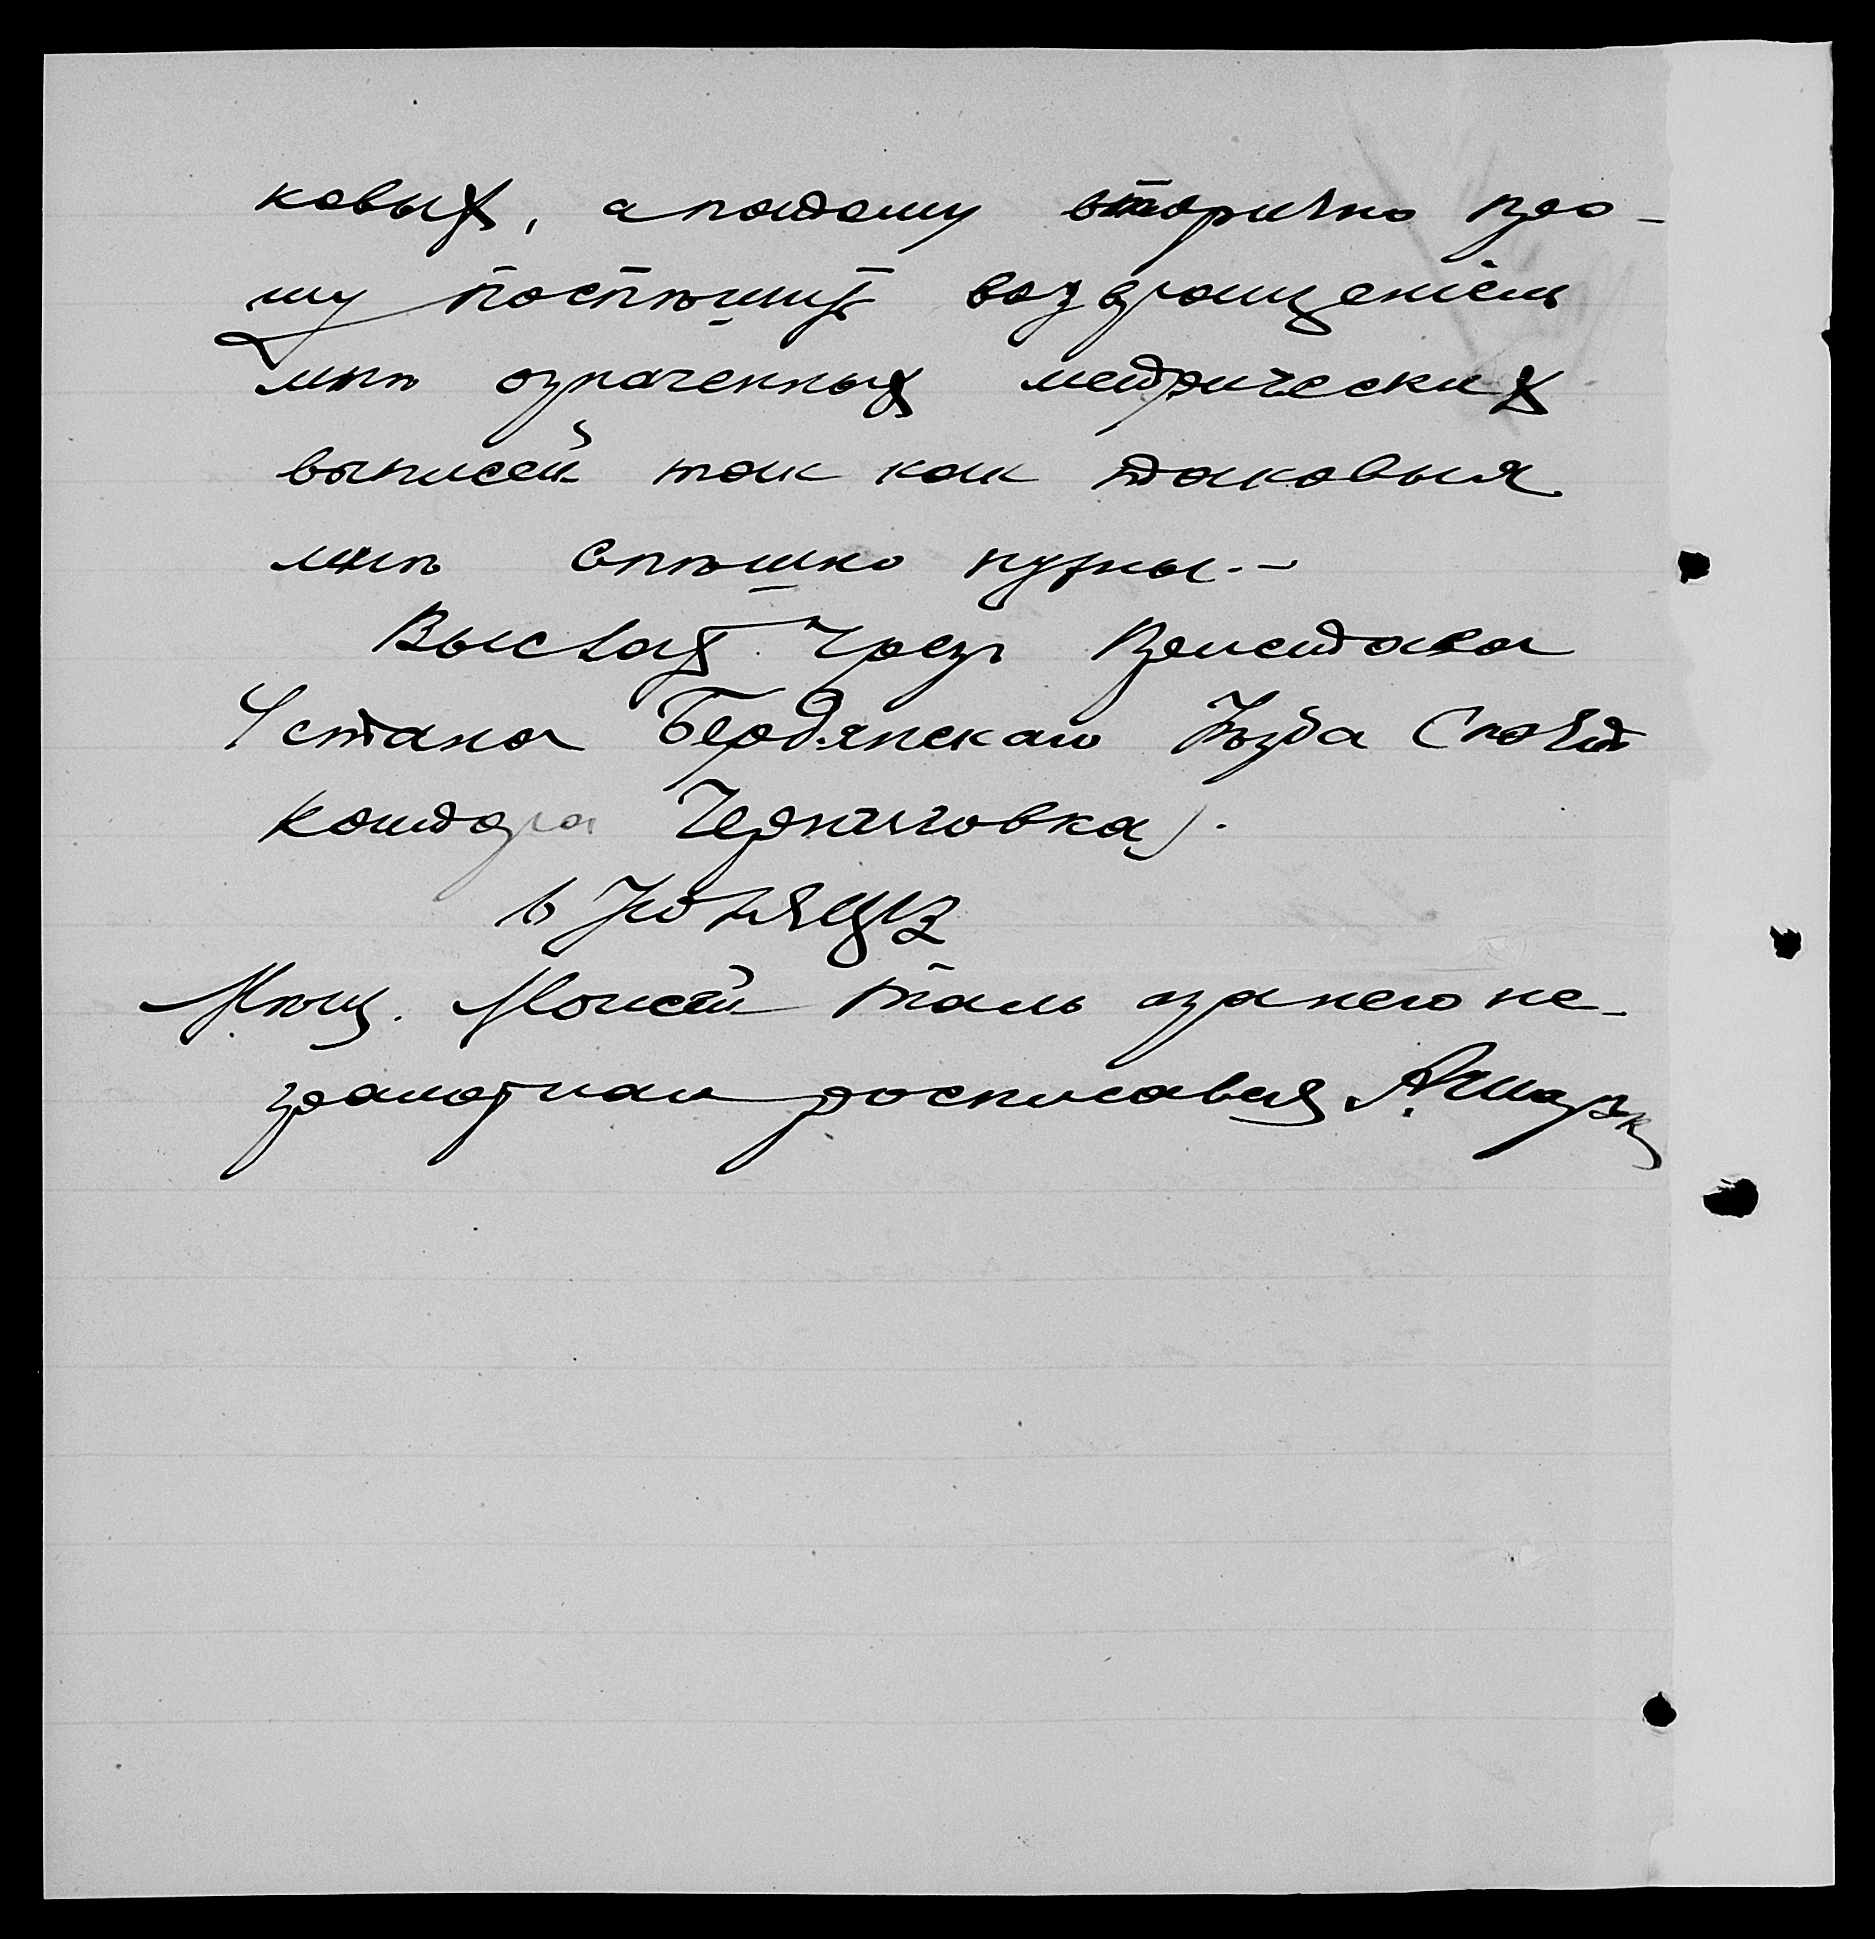 ковых, а потому вторично про-
шу поспѣшить возвращеніем
мнѣ означенных метрических
выписей так как таковыя
мнѣ спѣшно нужны.-
Выслать чрез Пристава
4 стана Бердянскаго Уѣзда (почт
контора Черниговка).
6 Юня
Мѣщ. Моисей Таль а за него не-
грамотнаго росписався А. Шварк